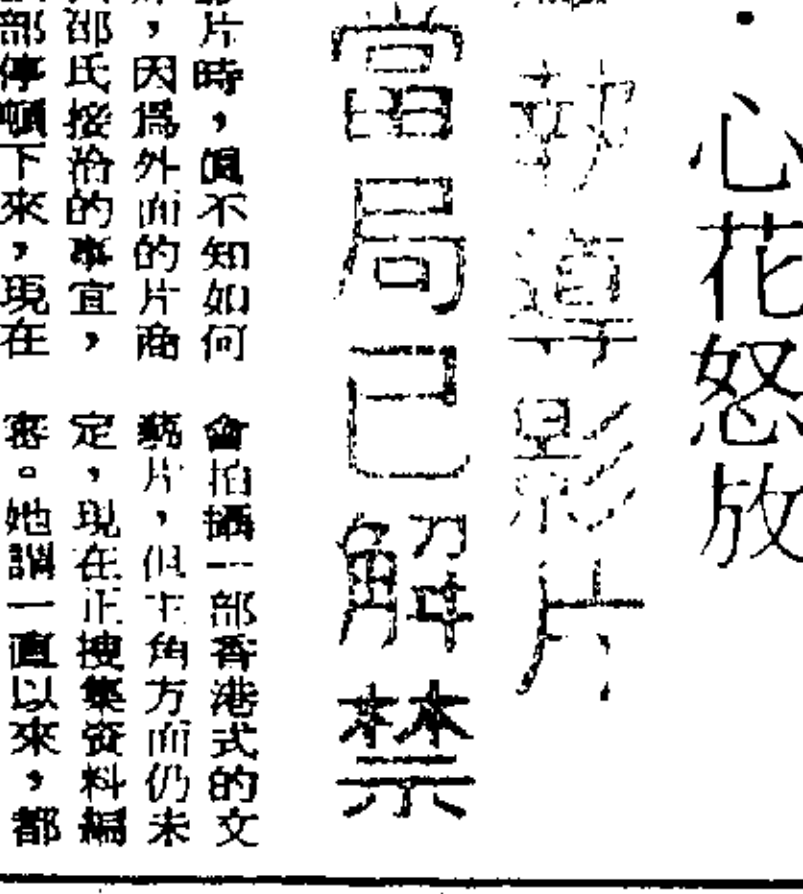 ・心花怒放
執導影片
當局已解禁
片時，眞不知如何
，因爲外面的片商
邵氏接洽的事宜，
部停頓下來，現在
會拍攝一部香港式的文
藝片，但主角方面仍未
定，現在正搜集資料編
寫。她謂一直以來，都